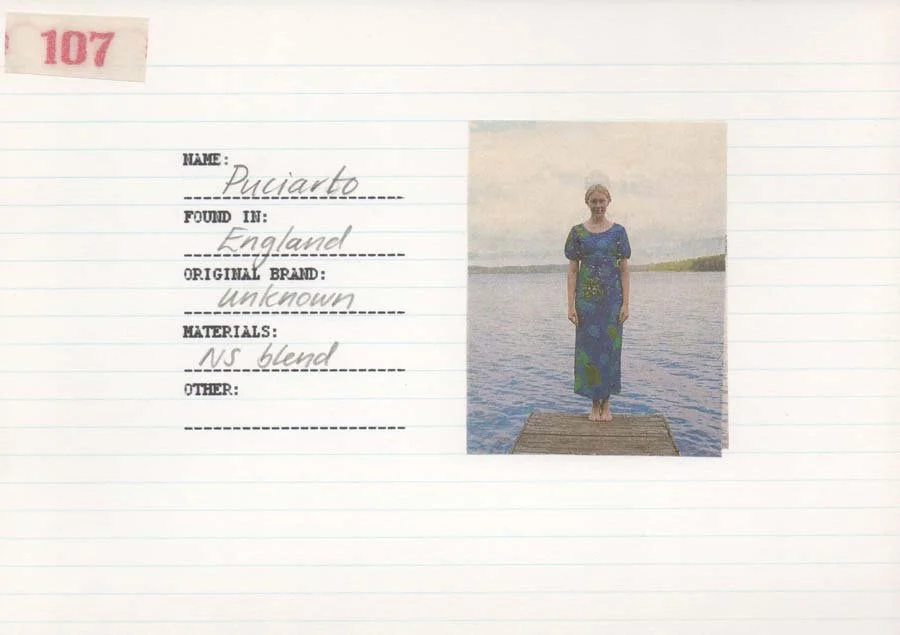 107
NAME:
Puciarto
FOUND IN:
England
ORIGINAL BRAND:
unknown
MATERIALS:
NS blend
OTHER: